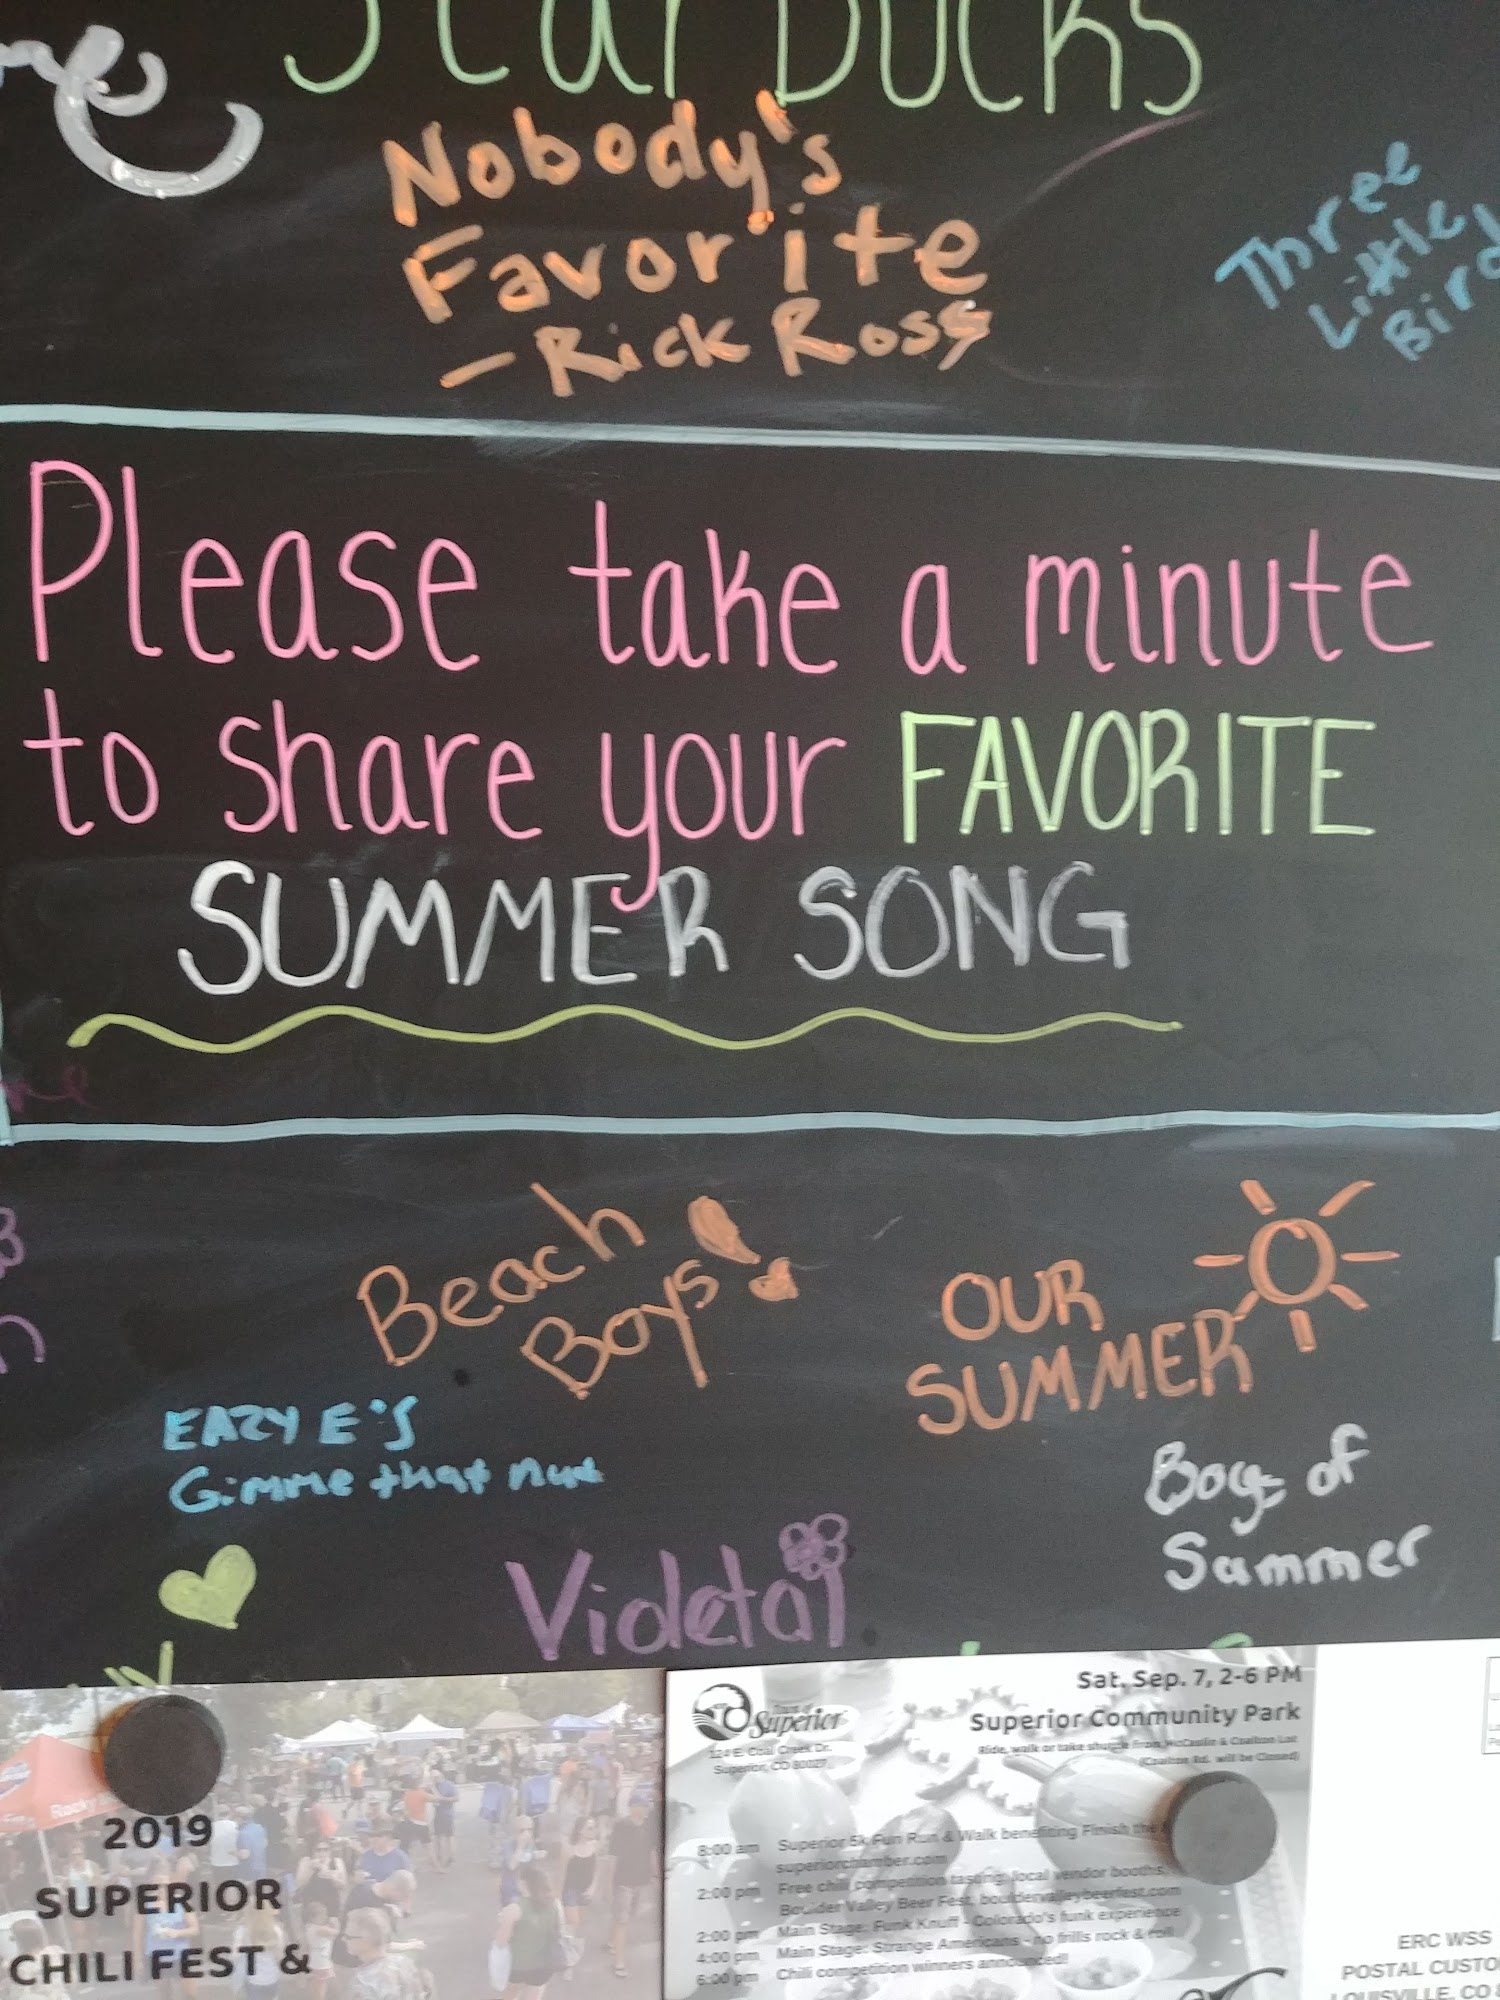 StarBucks
Nobody's
Favorite
- Rick Ross
Three
Little
Bird
Please take a minute
to share your FAVORITE
SUMMER SONG
Beach
Boys!
OUR
SUMMER
EAZY E'S
Gimme that nut
Boys of
Summer
Violeta!
2019
SUPERIOR
CHILI FEST &
Superior
124 E. Coal Creek Dr.
Superior, CO 80027
Sat. Sep. 7, 2-6 PM
Superior Community Park
Ride, walk or take shuttle from McCaslin & Coalton Lot
(Coalton Rd. will be Closed)
8:00 am Superior 5k Fun Run & Walk benefiting Finish the
superiorchamber.com
2:00 pm Free chili competition tasting, local vendor booths,
Boulder Valley Beer Fest, bouldervalleybeerfest.com
2:00 pm Main Stage: Funk Knuf - Colorado's funk experience
4:00 pm Main Stage: Strange Americans - no frills rock & roll
6:00 pm Chili competition winners announced!
ERC WSS
POSTAL CUSTO
LOUISVILLE, CO 8